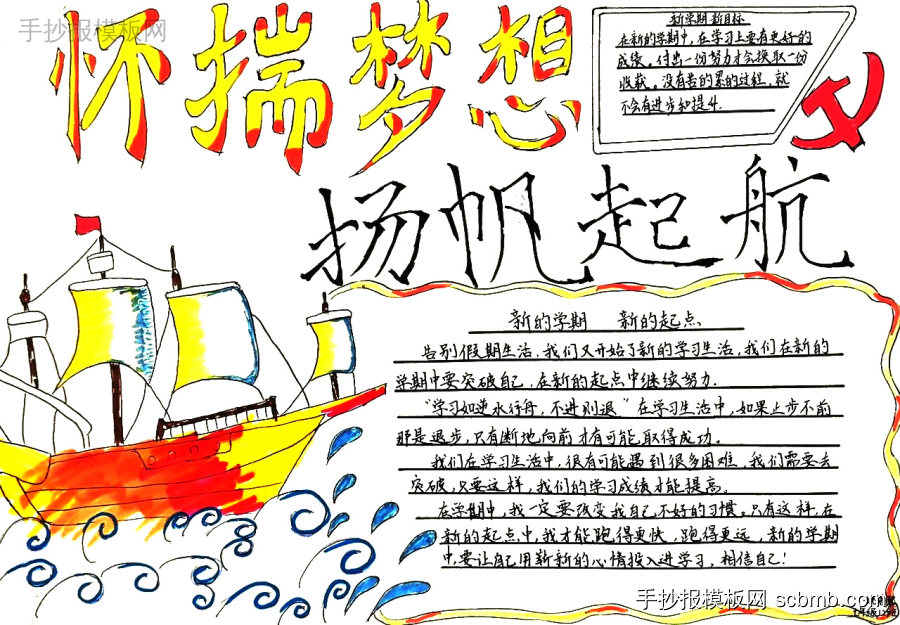 手抄报模板网
怀揣梦想
新学期 新目标
在新的学期中，在学习上要有更好的
成绩。付出一份努力才会换取一份
收获。没有苦的累的过程，就
不会有进步和提升.
扬帆起航
新的学期 新的起点
告别假期生活，我们又开始了新的学习生活，我们在新的
学期中要突破自己，在新的起点中继续努力.
"学习如逆水行舟，不进则退"在学习生活中，如果止步不前
那是退步，只有断地向前才有可能取得成功。
我们在学习生活中，很有可能遇到很多困难，我们需要去
突破，只要这样，我们的学习成绩才能提高。
在学期中，我一定要改变我自己不好的习惯，只有这样，在
新的起点中，我才能跑得更快，跑得更远，新的学期
中，要让自己用新新的心情投入进学习，相信自己！
手抄报模板网 scbmb.com